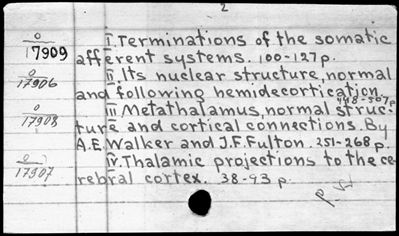 2
I. Terminations of the somatic
0
17909
afferent systems. 100-127 p.
II. Its nuclear structure, normal
0
17906
and following hemidecortication
448-507 p
III Metathalamus, normal struc-
0
17908
ture and cortical connections. By
A.E. Walker and J.F. Fulton. 251-268 p.
IV. Thalamic projections to the ce-
0
17907
rebral cortex. 38-93 p.